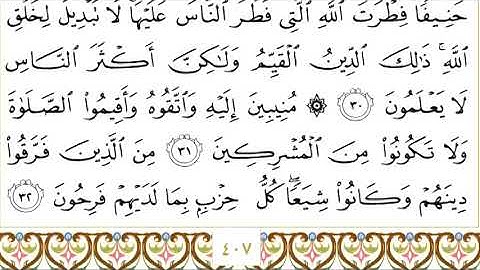 حَنِيفًا فِطْرَتَ ٱللَّهِ ٱلَّتِي فَطَرَ ٱلنَّاسَ عَلَيْهَا لَا تَبْدِيلَ لِخَلْقِ
ٱللَّهِ ۚ ذَٰلِكَ ٱلدِّينُ ٱلْقَيِّمُ وَلَٰكِنَّ أَكْثَرَ ٱلنَّاسِ
لَا يَعْلَمُونَ ٣٠ ۞ مُنِيبِينَ إِلَيْهِ وَٱتَّقُوهُ وَأَقِيمُوا۟ ٱلصَّلَوٰةَ
وَلَا تَكُونُوا۟ مِنَ ٱلْمُشْرِكِينَ ٣١ مِنَ ٱلَّذِينَ فَرَّقُوا۟
دِينَهُمْ وَكَانُوا۟ شِيَعًا ۖ كُلُّ حِزْبٍۭ بِمَا لَدَيْهِمْ فَرِحُونَ ٣٢
٤٠٧